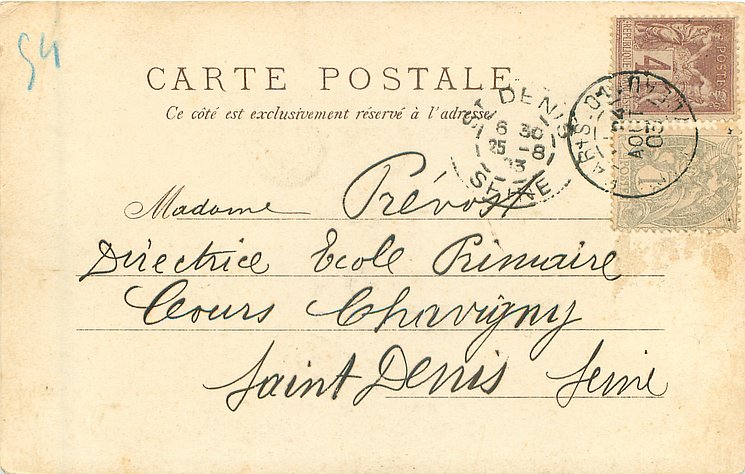 54
CARTE POSTALE
Ce côté est exclusivement réservé à l'adresse
ST DENIS
6 30
25 -8
03
SEINE
AOUT
03
POSTES
4
1
Madame Prévost
Directrice Ecole Primaire
Cours Chavigny
Saint Denis Seine